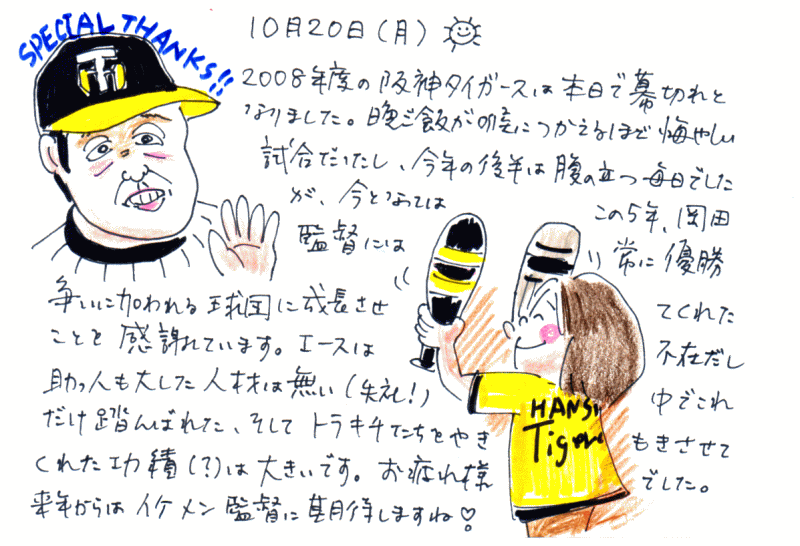 SPECIAL THANKS!!
10月20日(月)
2008年度の阪神タイガースは本日で幕切れと
なりました。晩ご飯が喉につかえるほど悔やしい
試合でだったし、今年の後半は腹の立つ毎日でした
が、今となっては この5年、岡田
監督には 常に優勝
争いに加われる球団に成長させ てくれた
ことを感謝しています。エースは 不在だし
助っ人も大した人材は無い(失礼!) 中でこれ
だけ踏んばれた、そしてトラキチたちをやき もきさせて
くれた功績(?)は大きいです。お疲れ様 でした。
来年からはイケメン監督に期待しますね♡
HANSI
Tigers